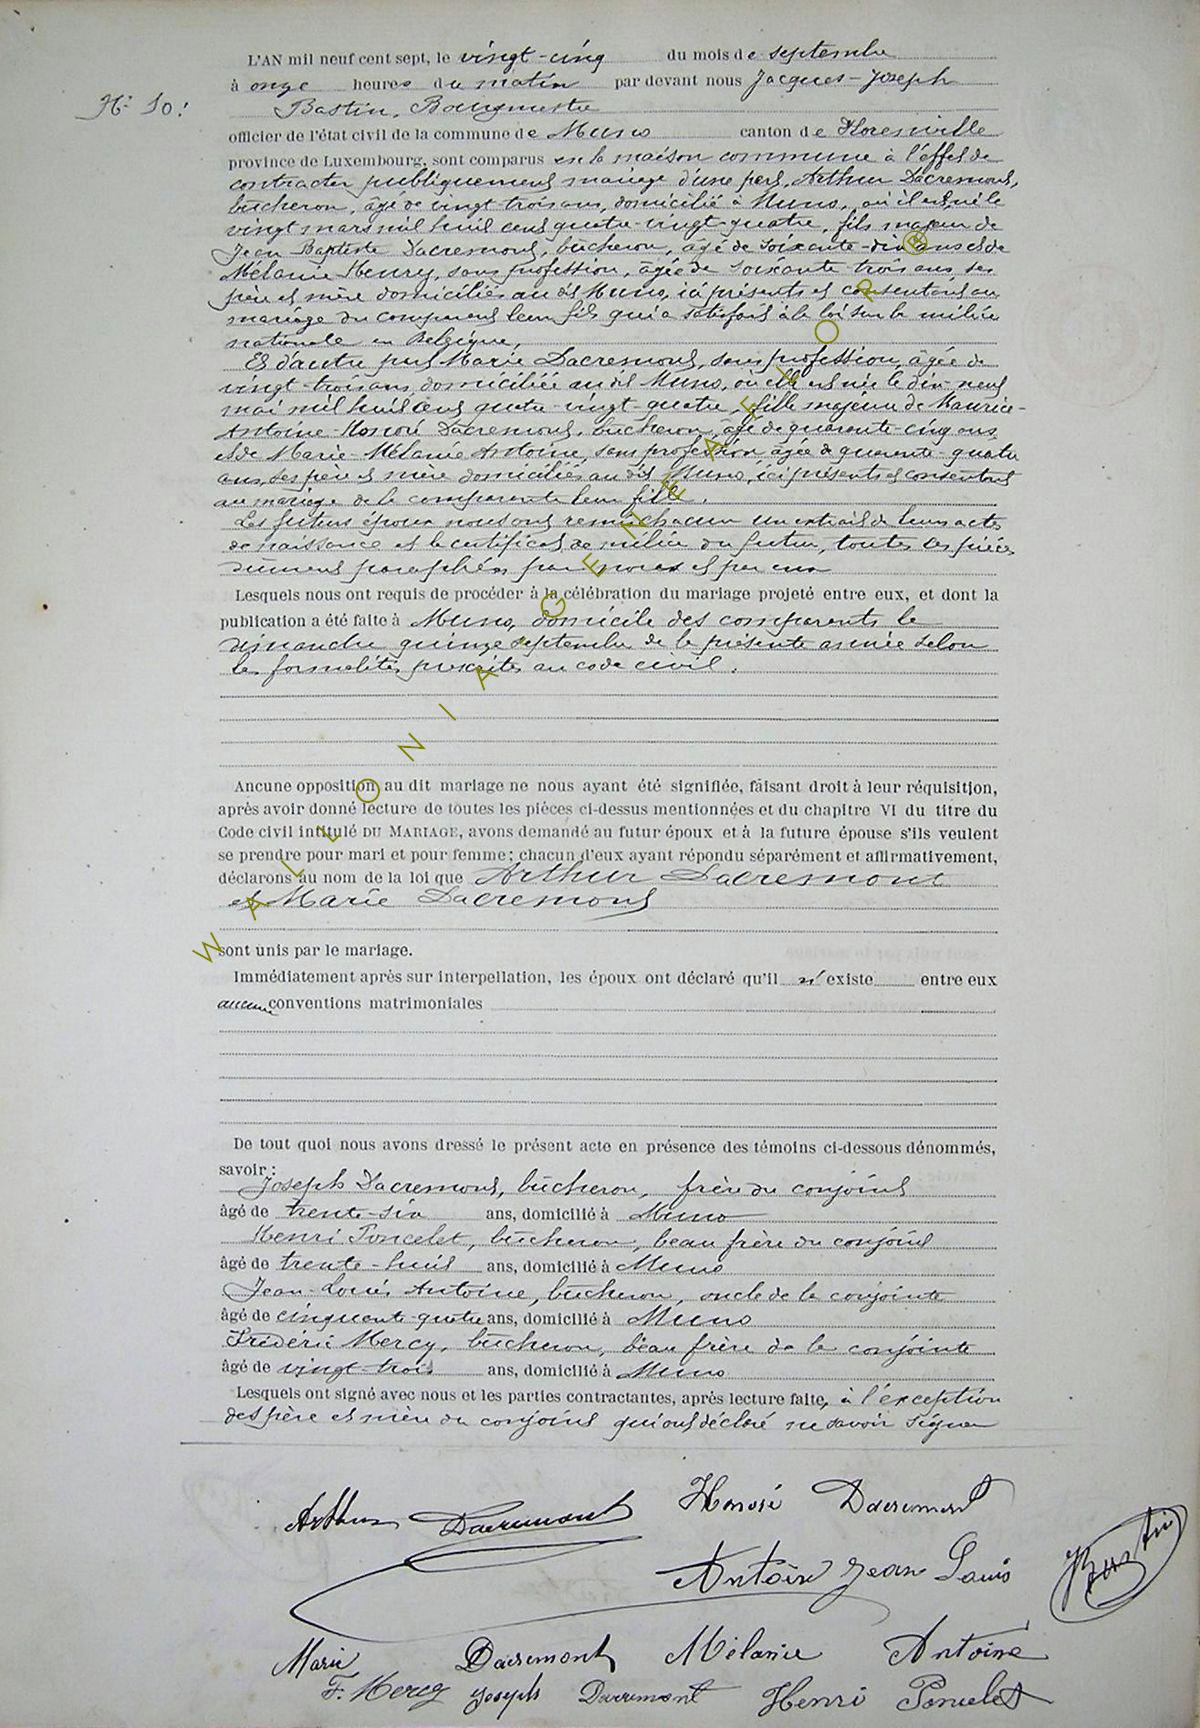 L'AN mil neuf cent sept, le vingt-cinq du mois de septembre
à onze heures du matin par devant nous Jacques-Joseph
N° 10.
Bastin, Bourgmestre
officier de l'état civil de la commune de Muno canton de Florenville
province de Luxembourg, sont comparus en la maison commune à l'effet de
contracter publiquement mariage d'une part, Arthur Dacremont,
bûcheron, âgé de vingt-trois ans, domicilié à Muno, où il est né le
vingt mars mil huit cent quatre-vingt-quatre, fils majeur de
Jean Baptiste Dacremont, bûcheron, âgé de soixante-dix ans et de
Mélanie Henry, sans profession, âgée de soixante trois ans, ses
père et mère domiciliés au dit Muno, ici présents et consentant au
mariage du comparent leur fils qui a satisfait à la loi sur la milice
nationale en Belgique,
Et d'autre part Marie Dacremont, sans profession, âgée de
vingt-trois ans, domiciliée au dit Muno, où elle est née le dix-neuf
mai mil huit cent quatre-vingt-quatre, fille majeure de Maurice-
Antoine-Honoré Dacremont, bûcheron, âgé de quarante-cinq ans
et de Marie-Mélanie Antoine, sans profession âgée de quarante-quatre
ans, ses père et mère domiciliés au dit Muno, ici présents et consentant
au mariage de la comparente leur fille.
Les futurs époux nous ont remis chacun un extrait de leurs actes
de naissance et le certificat de milice du futur, toutes ces pièces
dûment paraphées par nous et par eux
Lesquels nous ont requis de procéder à la célébration du mariage projeté entre eux, et dont la
publication a été faite à Muno, domicile des comparents le
dimanche quinze septembre de la présente année selon
les formalités prescrites au code civil.
Aucune opposition au dit mariage ne nous ayant été signifiée, faisant droit à leur réquisition,
après avoir donné lecture de toutes les pièces ci-dessus mentionnées et du chapitre VI du titre du
Code civil intitulé DU MARIAGE, avons demandé au futur époux et à la future épouse s'ils veulent
se prendre pour mari et pour femme; chacun d'eux ayant répondu séparément et affirmativement,
déclarons au nom de la loi que Arthur Dacremont
et Marie Dacremont
sont unis par le mariage.
Immédiatement après sur interpellation, les époux ont déclaré qu'il n'existe entre eux
aucune conventions matrimoniales
De tout quoi nous avons dressé le présent acte en présence des témoins ci-dessous dénommés,
savoir:
Joseph Dacremont, bûcheron, frère du conjoint
âgé de trente-six ans, domicilié à Muno
Henri Poncelet, bûcheron, beau frère du conjoint
âgé de trente-huit ans, domicilié à Muno
Jean-Louis Antoine, bûcheron, oncle de la conjointe
âgé de cinquante quatre ans, domicilié à Muno
Frédéric Mercy, bûcheron, beau frère de la conjointe
âgé de vingt-trois ans, domicilié à Muno
Lesquels ont signé avec nous et les parties contractantes, après lecture faite, à l'exception
des père et mère du conjoint qui ont déclaré ne savoir signer
Arthur Dacremont Honoré Dacremont
Antoine Jean Louis Bastin
Marie Dacremont Mélanie Antoine
F. Mercy Joseph Dacremont Henri Poncelet
WALLONIA GENEAFLOP ®